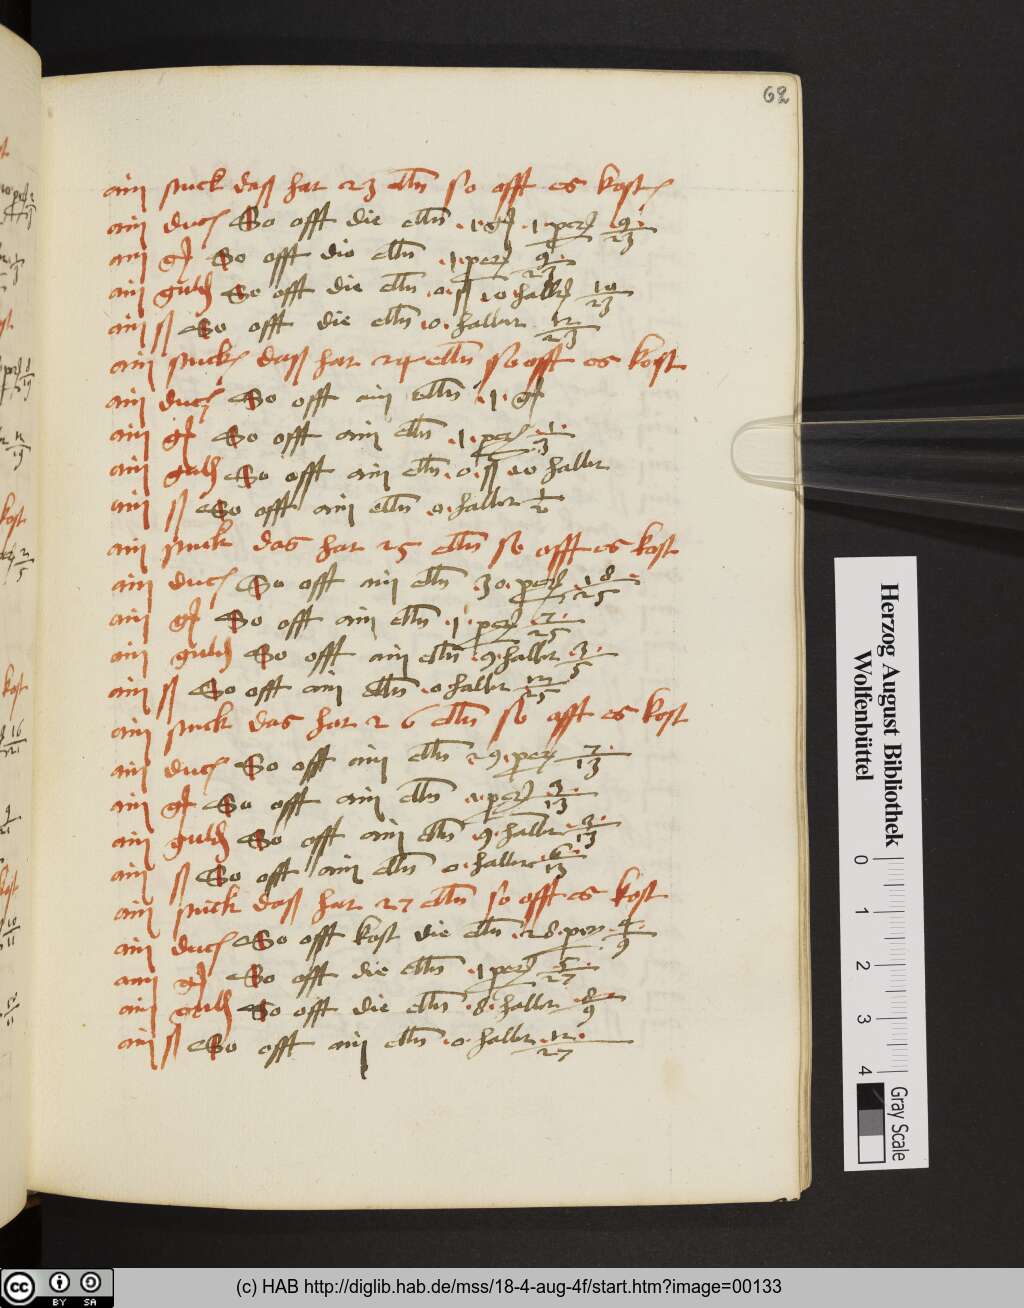 62
ain stuck daß hat 23 elln so offt es kost
ain duc So offt die elln 1 gſ 1 per 9/23
ain gſ So offt die elln 1 per 9/23
ain guld So offt die elln 0 ß 10 haller 10/23
ain ß So offt die elln 0 haller 12/23
ain stuck daß hat 24 elln so offt es kost
ain duc So offt ain elln 1 gſ
ain gſ So offt ain elln 1 per 1/3
ain guld So offt ain elln 0 ß 10 haller
ain ß So offt ain elln 0 haller 1/2
ain stuck das hat 25 elln so offt es kost
ain duc So offt ain elln 30 per 18/25
ain gſ So offt ain elln 1 per 7/25
ain guld So offt ain elln 9 haller 3/5
ain ß So offt ain elln 0 haller 12/25
ain stuck das hat 26 elln so offt es kost
ain duc So offt ain elln 29 per 7/13
ain gſ So offt ain elln 1 per 3/13
ain guld So offt ain elln 9 haller 3/13
ain ß So offt ain elln 0 haller 6/13
ain stuck daß hat 27 elln so offt es kost
ain duc So offt kost die elln 28 per 4/9
ain gſ So offt die elln 1 per 5/27
ain guld So offt die elln 8 haller 8/9
ain ß So offt ain elln 0 haller 12/27
Herzog August Bibliothek
Wolfenbüttel
0 1 2 3 4
Gray Scale
cc BY SA
(c) HAB http://diglib.hab.de/mss/18-4-aug-4f/start.htm?image=00133